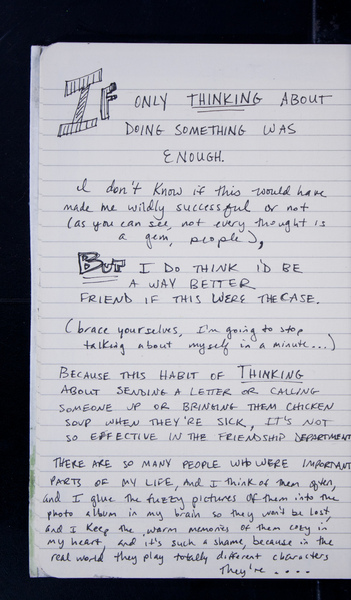 IF ONLY THINKING ABOUT
DOING SOMETHING WAS
ENOUGH.
I don't know if this would have
made me wildly successful or not
(as you can see, not every thought is
a gem, people),
BUT I DO THINK I'D BE
A WAY BETTER
FRIEND IF THIS WERE THE CASE.
(brace yourselves, I'm going to stop
talking about myself in a minute...)
BECAUSE THIS HABIT OF THINKING
ABOUT SENDING A LETTER OR CALLING
SOMEONE UP OR BRINGING THEM CHICKEN
SOUP WHEN THEY'RE SICK, IT'S NOT
SO EFFECTIVE IN THE FRIENDSHIP DEPARTMENT
THERE ARE SO MANY PEOPLE WHO WERE IMPORTANT
PARTS OF MY LIFE, AND I THINK OF THEM often,
and I glue the fuzzy pictures of them into the
photo album in my brain so they won't be lost,
and I keep the warm memories of them cozy in
my heart, and it's such a shame, because in the
real world they play totally different characters
They're ....